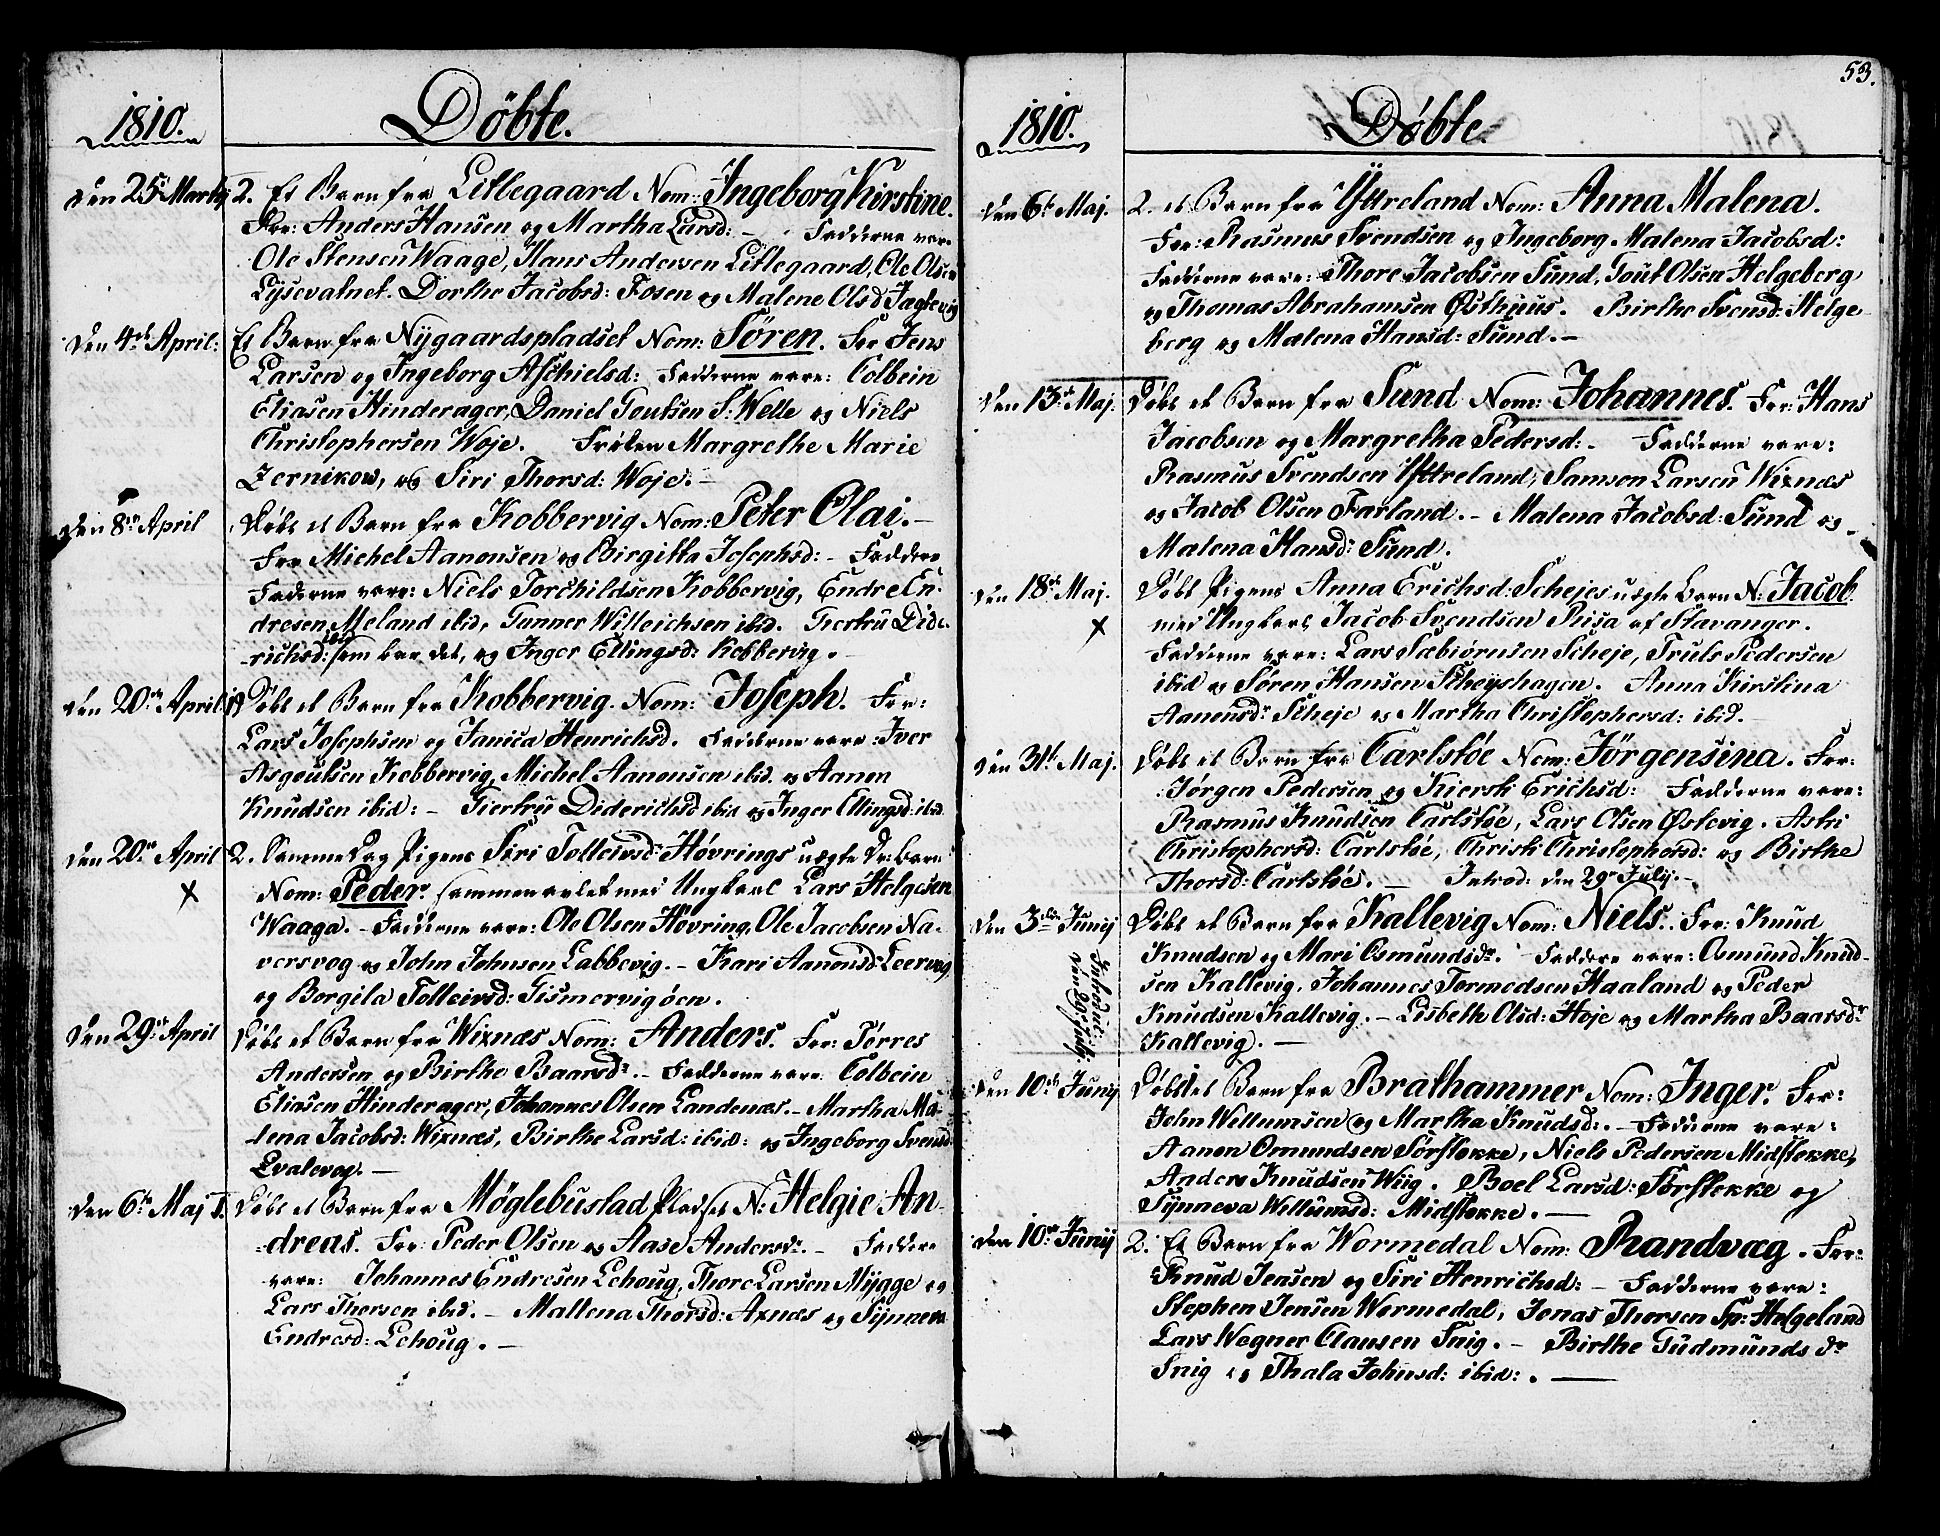 1810. Döbte.
Den 25de Martij 2. Et Barn fra Litlegaard Nom: Ingeborg Kirstine.
For: Anders Hansen og Martha Larsd: – Fadderne vare
Ole Stensen Waage, Hans Andersen Litlegaard, Ole Olsen
Lysevatnet. Dorthe Jacobsd: Fosen og Malene Olsd Jagtevig
Den 4de April: Et Barn fra Nygaardspladset Nom: Sören. For Jens
Larsen og Ingeborg Aschielsd: Fadderne vare: Colbein
Eliasen Hinderager, Daniel Goutsen S: Welle og Niels
Christophersen Woje. Fröken Margrethe Marie
Zernikow, og Siri Thorsd: Woje. –
Den 8de April Döbt et Barn fra Kobbervig Nom: Peter Olai. –
For Michel Aanonsen og Birgitta Josephsd: – Faddere
Fadderne vare: Niels Torchildsen Kobbervig, Endre En-
dresen Meland ibid, Gunner Willeichsen ibid. Giertru Dide-
richsd: ibid som bar det, og Inger Ellingsd: Kobbervig. –
Den 20de April Döbt et Barn fra Kobbervig. Nom: Joseph. For:
Lars Josephsen og Janica Henrichsd. Fadderne vare: Iver
Asgoutsen Kobbervig, Michel Aanonsen ibid og Aanen
Knudsen ibid: – Giertru Diderichsd ibid og Inger Ellingsd: ibid
Den 20de April 2. Samme Dag Pigens Siri Tolleivsd: Hövrings uægte Dr: Barn
X Nom: Peder. sammenavlet med Ungkarl Lars Helgesen
Waaga. – Fadderne vare: Ole Olsen Hövring, Ole Jacobsen Na-
versvog og John Johnsen Labbevig. – Kari Aanonsd: Leervog,
og Borgila Tolleivsd: Gismervigöen.
Den 29de April Döbt et Barn fra Wixnæs Nom: Anders. For: Törres
Andersen og Birthe Baarsdr. – Fadderne vare: Colbein
Eliasen Hinderager, Johannes Olsen Landenæs. – Martha Ma-
lena Jacobsd: Wixnæs, Birthe Larsd: ibid: og Ingeborg Svensd:
Qvalevog. –
Den 6te Maj 1. Döbt et Barn fra Möglebustad Pladset N: Helgie An-
dreas. For: Peder Olsen og Aase Andersdr. – Faddere
vare: Johannes Endresen Lehoug, Thore Larsen Mygge og
Lars Thorsen ibid. – Mallena Thorsd: Axnæs og Synneva
Endresd: Lehoug. –
53.
1810. Döbte.
Den 6te Maj. 2. et Barn fra Yttreland Nom: Anna Malena.
For: Rasmus Svendsen og Ingeborg Malena Jacobsd:
Fadderne vare: Thore Jacobsen Sund, Gout Olsen Helgeberg
og Thomas Abrahamsen Östhuus. Birthe Svensd: Helge-
berg og Malena Hansd: Sund. –
Den 13de Maj. Döbt et Barn fra Sund Nom: Johannes. For: Hans
Jacobsen og Margretha Pedersd:. Fadderne vare:
Rasmus Svendsen Yttreland, Samson Larsen Wixnæs
og Jacob Olsen Farland. – Malena Jacobsd: Sund og
Malena Hansd: Sund.
Den 18de Maj. Döbt Pigens Anna Erichsd: Schejes uægte Barn N: Jacob.
X med Ungkarl Jacob Svendsen Risa af Stavanger.
Fadderne vare: Lars Sæbiörnsen Scheje, Truls Pedersen
ibid og Sören Hansen Scheyshagen. Anna Kirstina
Aanonsdr Scheje og Martha Christophersd: ibid. –
Den 31te Maj. Döbt et Barn fra Carlstöe Nom: Jörgensina. For:
Jörgen Pedersen og Kiersti Erichsd: Fadderne vare:
Rasmus Knudsen Carlstöe, Lars Olsen Östevig. Astri
Christophersd: Carlstöe, Christi Christophersd: og Birthe
Thorsd: Carlstöe. – Introd: den 29de Julij. –
Den 3die Junij Döbt et Barn fra Kallevig Nom: Niels. For: Knud
Knudsen og Mari Osmundsdr. Faddere vare: Osmund Knud-
sen Kallevig, Johannes Tormodsen Haaland og Peder
Knudsen Kallevig. – Lisbeth Olsd: Hoje og Martha Baarsdr
Kallevig. –
Introduc:
den 29de Julij.
Den 10de Junij Döbt et Barn fra Brathammer Nom: Inger. For:
John Willumsen og Martha Knudsd:. – Fadderne vare:
Aanon Omundsen Sörstokke, Niels Pedersen Midstokke,
Anders Knudsen Wiig. Boel Larsd: Sörstokke og
Synneva Willumsd: Midstokke. –
Den 10de Junij 2. Et Barn fra Wormedal Nom: Randvæg. For:
Knud Jensen og Siri Henrichsd: – Fadderne vare:
Stephen Jensen Wormedal, Jonas Thorsen Sp: Helgeland
Lars Wegner Clausen Snig. – Birthe Gudmundsdr
Snig og Thala Johnsd: ibid:. –